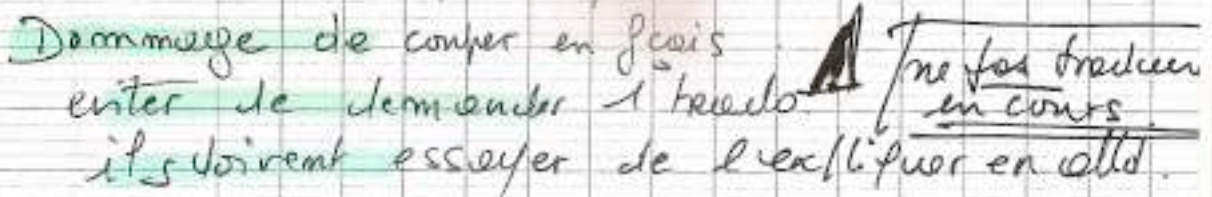 Dommage de couper en fçais.
eviter de demander 1 traduc
ils doivent essayer de l'expliquer en alld.
ne pas traduire
en cours